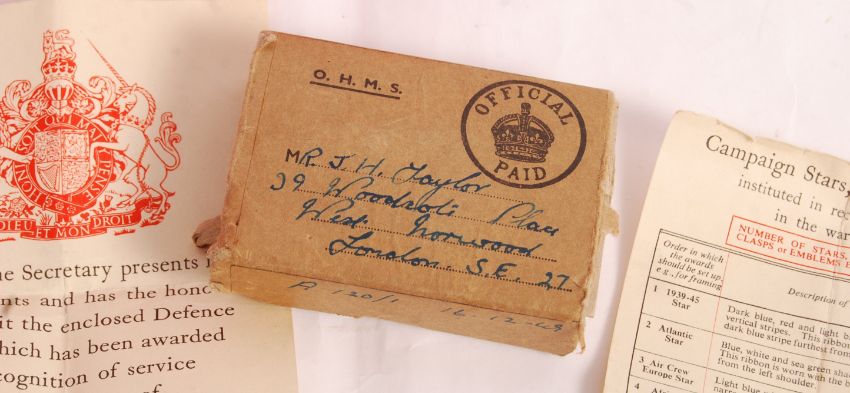 HONI SOIT QUI MAL Y PENSE
DIEU ET MON DROIT
he Secretary presents
nts and has the hono
it the enclosed Defence
hich has been awarded
cognition of service
of
O. H. M. S.
OFFICIAL
PAID
MR J. H. Taylor
39 Place
West Norwood
London S.E. 27
A 120/1 16-12-49
Campaign Stars,
instituted in rec
in the war
NUMBER OF STARS,
CLASPS or EMBLEMS E
Order in which
the awards
should be set up,
e.g., for framing
Description of
1 1939-45
Star
Dark blue, red and light b
vertical stripes. This ribbon
dark blue stripe furthest from
2 Atlantic
Star
Blue, white and sea green sha
This ribbon is worn with the b
from the left shoulder.
3 Air Crew
Europe Star
Light blue
narro
4